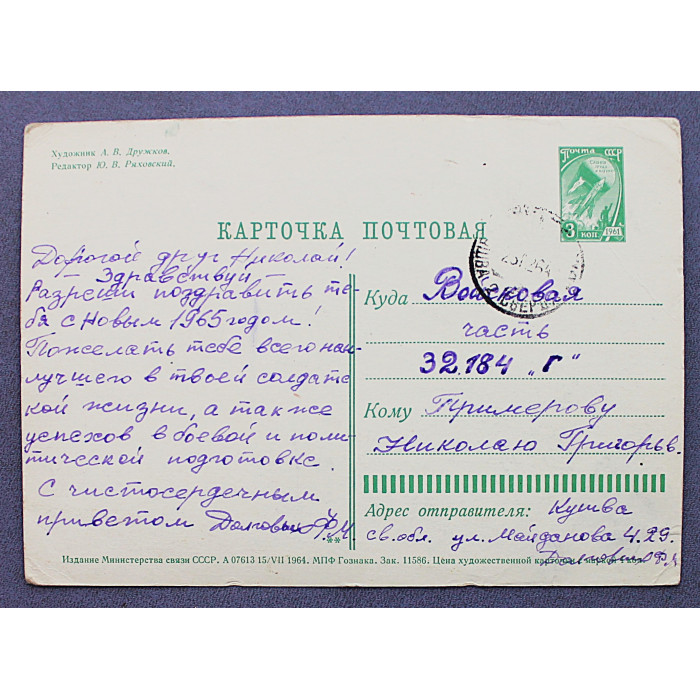 Художник А. В. Дружков.
Редактор Ю. В. Ряховский.
ПОЧТА СССР
3 КОП 1961
КАРТОЧКА ПОЧТОВАЯ
Дорогой друг Николай!
Здравствуй
Разреши поздравить те-
бя с Новым 1965 годом!
Пожелать тебе всего наи-
лучшего в твоей солдатс
кой жизни, а также
успехов в боевой и поли-
тической подготовке.
С чистосердечным
приветом Долговых Ф.И.
Куда Войсковая
часть
32.184 „Г"
Кому Примерову
Николаю Григорьв.
Адрес отправителя: Кушва
св. обл. ул. Майданова 4.29.
**
Издание Министерства связи СССР. А 07613 15/VII 1964. МПФ Гознака. Зак. 11586. Цена художественной карточки с маркой 4 коп.